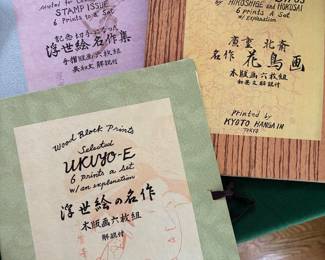 STAMP ISSUE
6 Prints a Set
記念切手になった
浮世絵名作集
手摺版画六枚組
英和文解説付
by HIROSHIGE and HOKUSAI
6 prints a Set
w/ explanation
廣重 北斎
名作 花鳥画
木版画六枚組
和英文解説付
Printed by
KYOTO HANGAIN
TOKYO
Wood Block Prints
Selected
UKIYO-E
6 prints a set
w/ an explanation
浮世絵の名作
木版画六枚組
解説付